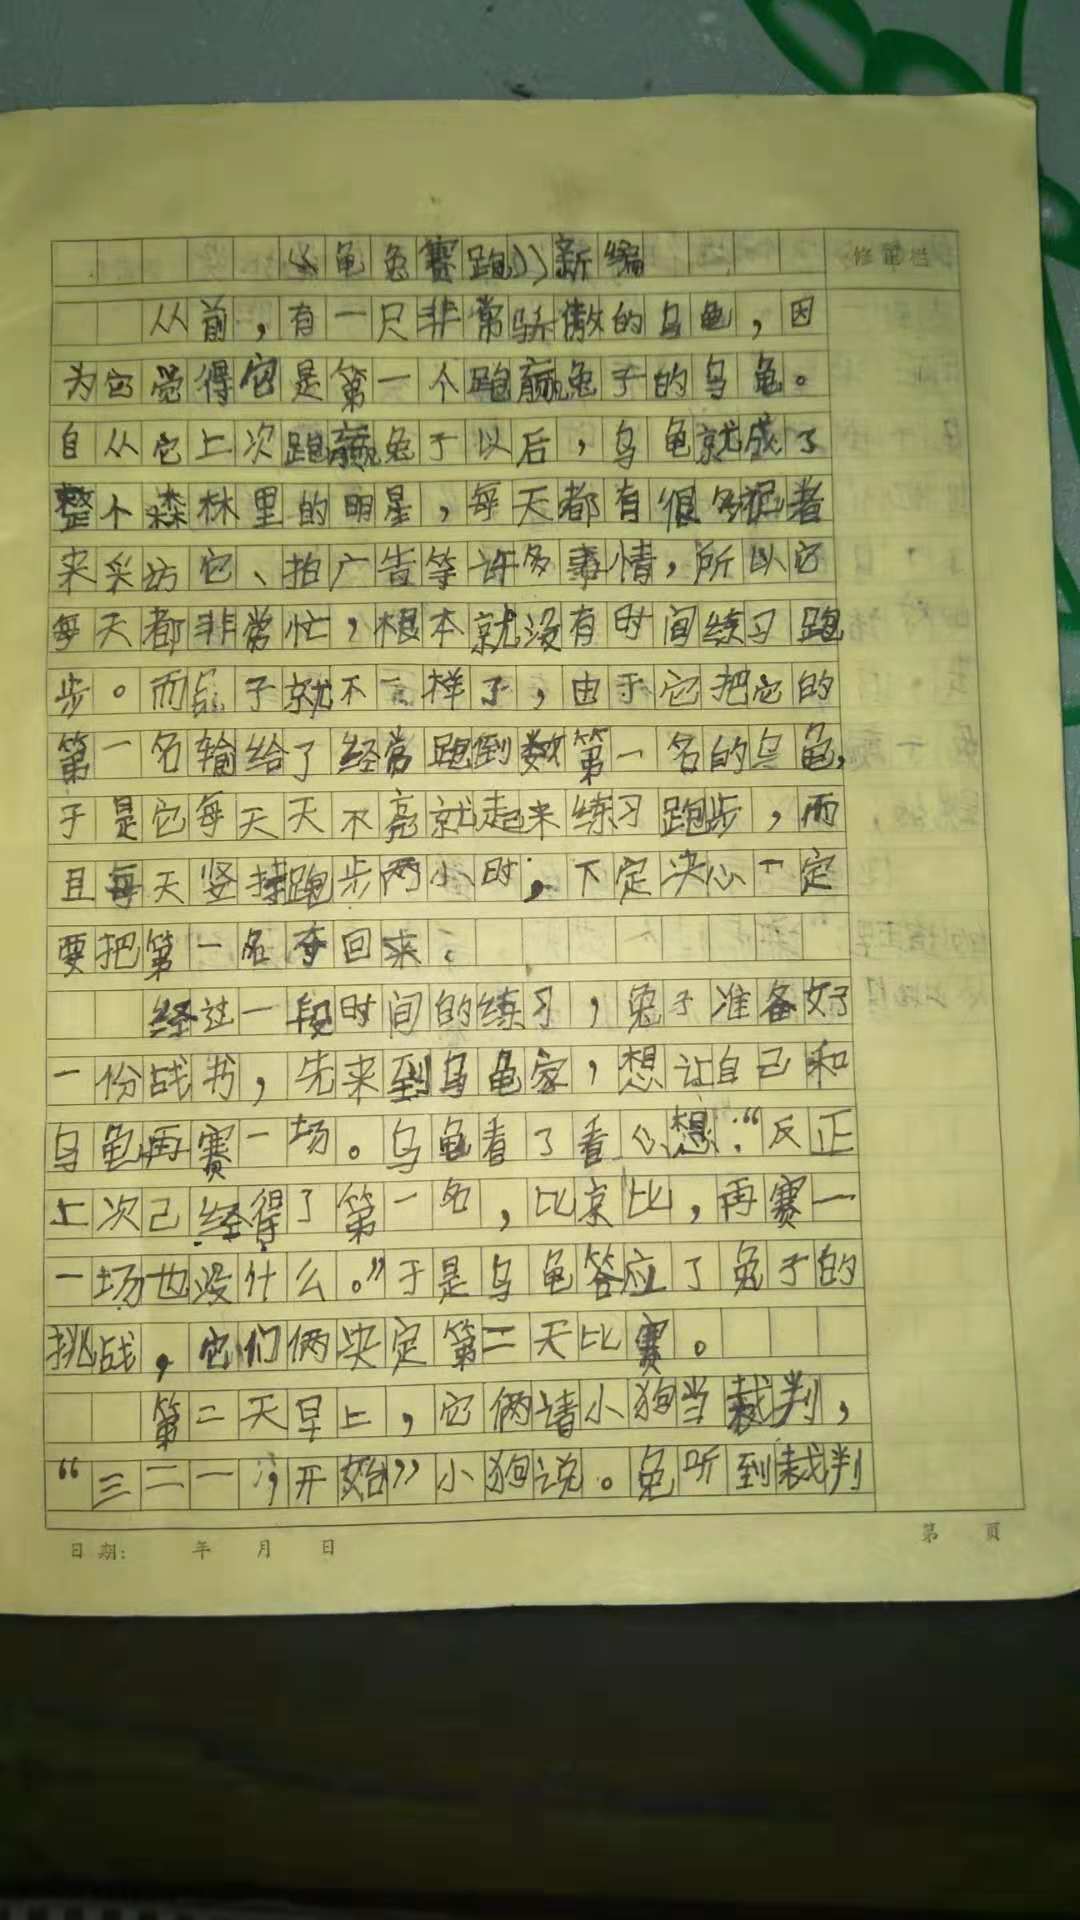 《龟兔赛跑》新编
修改栏
从前，有一只非常骄傲的乌龟，因
为它觉得它是第一个跑赢兔子的乌龟。
自从它上次跑赢兔子以后，乌龟就成了
整个森林里的明星，每天都有很多记者
来采访它、拍广告等许多事情，所以它
每天都非常忙，根本就没有时间练习跑
步。而兔子就不一样了，由于它把它的
第一名输给了经常跑倒数第一名的乌龟，
于是它每天天不亮就起来练习跑步，而
且每天坚持跑步两小时，下定决心一定
要把第一名夺回来.
经过一段时间的练习，兔子准备好了
一份战书，先来到乌龟家，想让自己和
乌龟再赛一场。乌龟看了看心想：“反正
上次已经得了第一名，比京比，再赛一
一场也没什么。”于是乌龟答应了兔子的
挑战，它们俩决定第二天比赛。
第二天早上，它俩请小狗当裁判，
“三二一，开始”小狗说。兔听到裁判
日期：　年　月　日
第　页